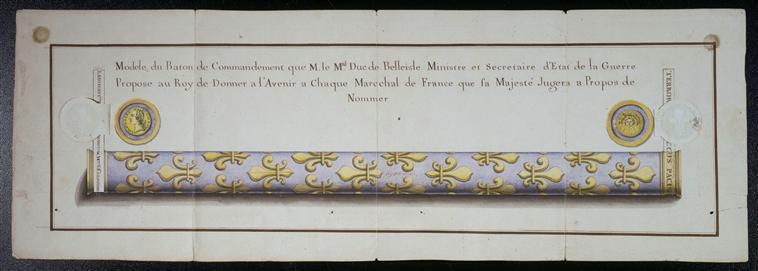 Modele, du Baton de Commandement que M. le Mal Duc de Belleisle Ministre et Secretaire d'Etat de la Guerre
Propose au Roy de Donner a l'Avenir a Chaque Marechal de France que sa Majesté Jugera a Propos de
Nommer
TERROR
PACIS